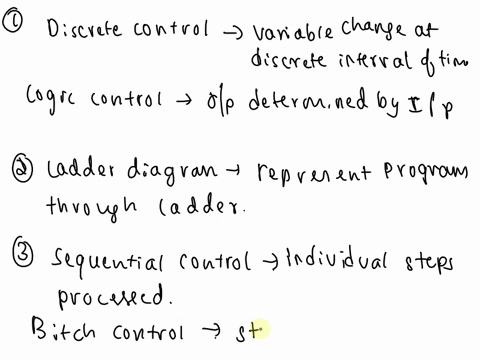 ① Discrete control → variable change at
discrete interval of time
Logic control → o/p determined by I/p
② Ladder diagram → represent program
through ladder.
③ Sequential control → Individual steps
processed.
Bitch control → st